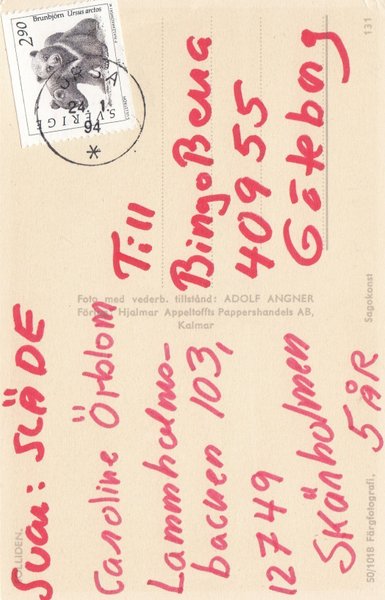 2.90
Brunbjörn Ursus arctos
SVERIGE
24. 1.
94
131
Till
BingoBerra
409 55
Göteborg
Foto med vederb. tillstånd: ADOLF ANGNER
Förlag: Hjalmar Appeltoffts Pappershandels AB,
Kalmar
Sagokonst
Svar: SLÄDE
Caroline Örblom
Lammholms-
backen 103,
12749
Skärholmen
5 ÅR
SOLLIDEN.
50/1018 Färgfotografi.